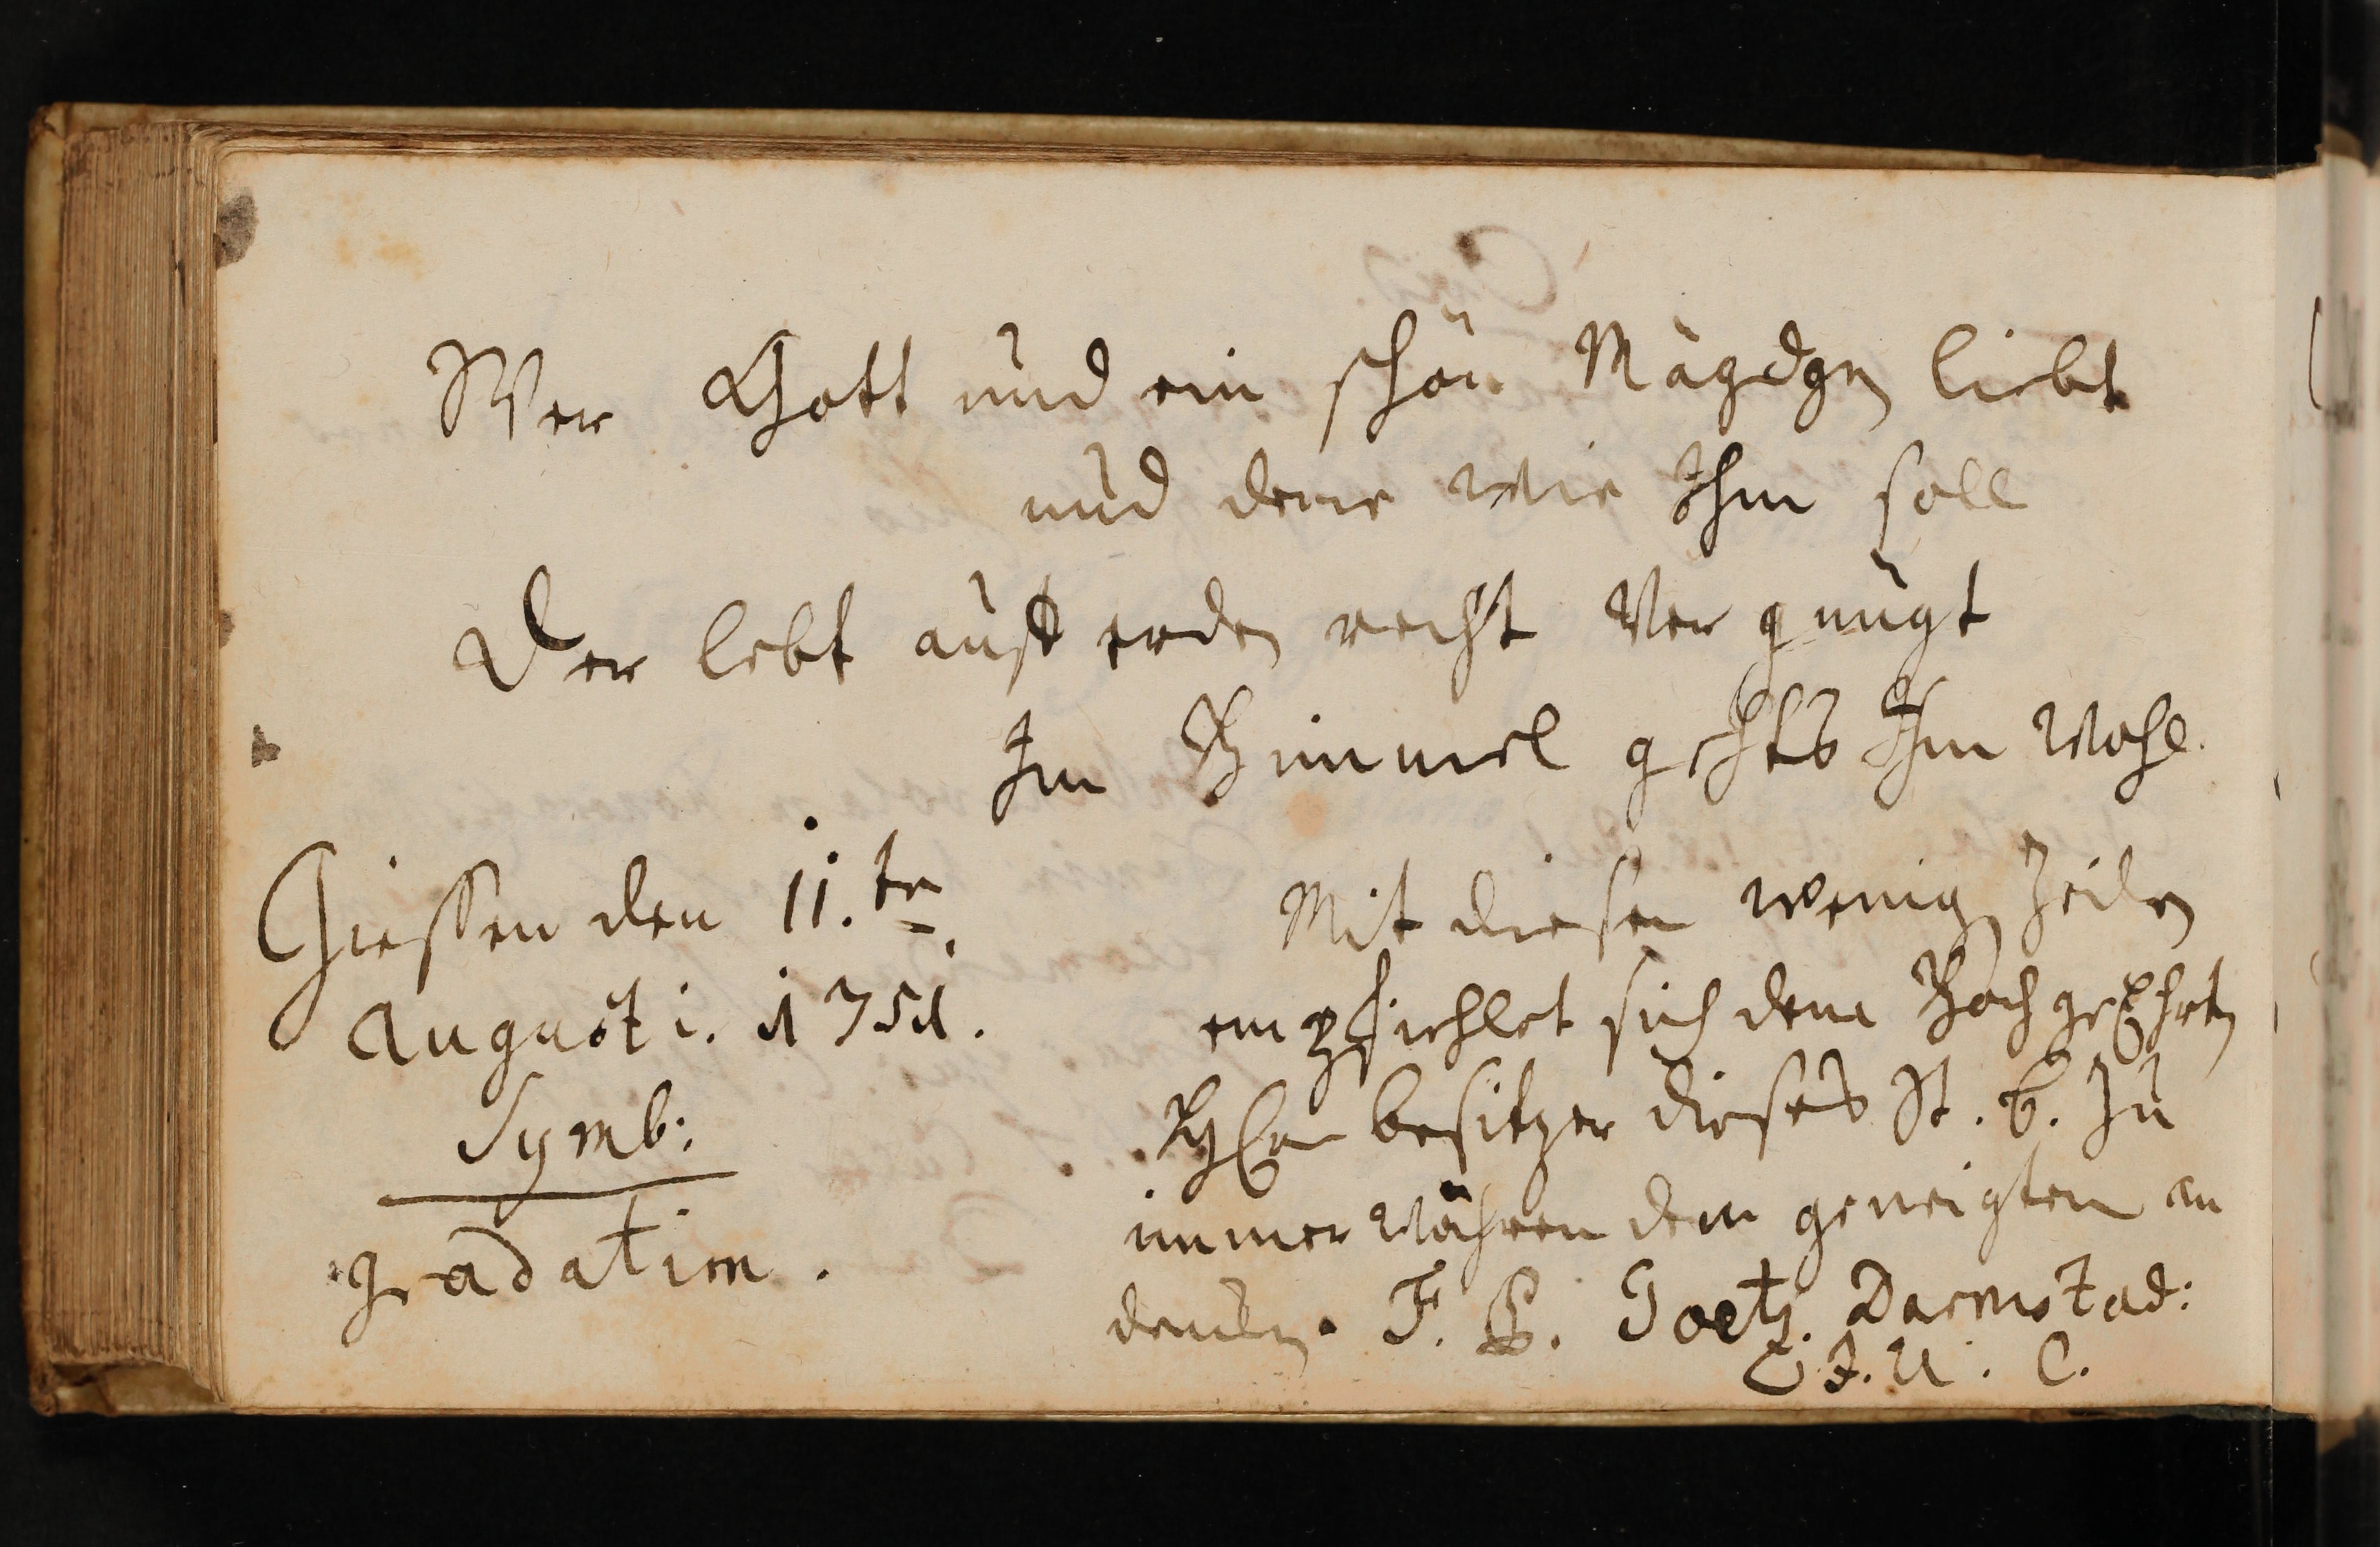 Wer Gott und ein schön Mägdgen liebt
und dene wie Ihm soll
Der lebt auff erden recht Vergnügt
Im Himmel gehts Ihm Wohl.
Giessen den 11. ten
Augusti. 1751.
Symb:
gradatim.
Mit diesen wenig Zeilen
empfiehlet sich dem HochgeEhrten
besitzer dieses St. b. zu
immer Währendem geneigten an
dencken. F. B. Goetz. Darmstad:
J. U. C.